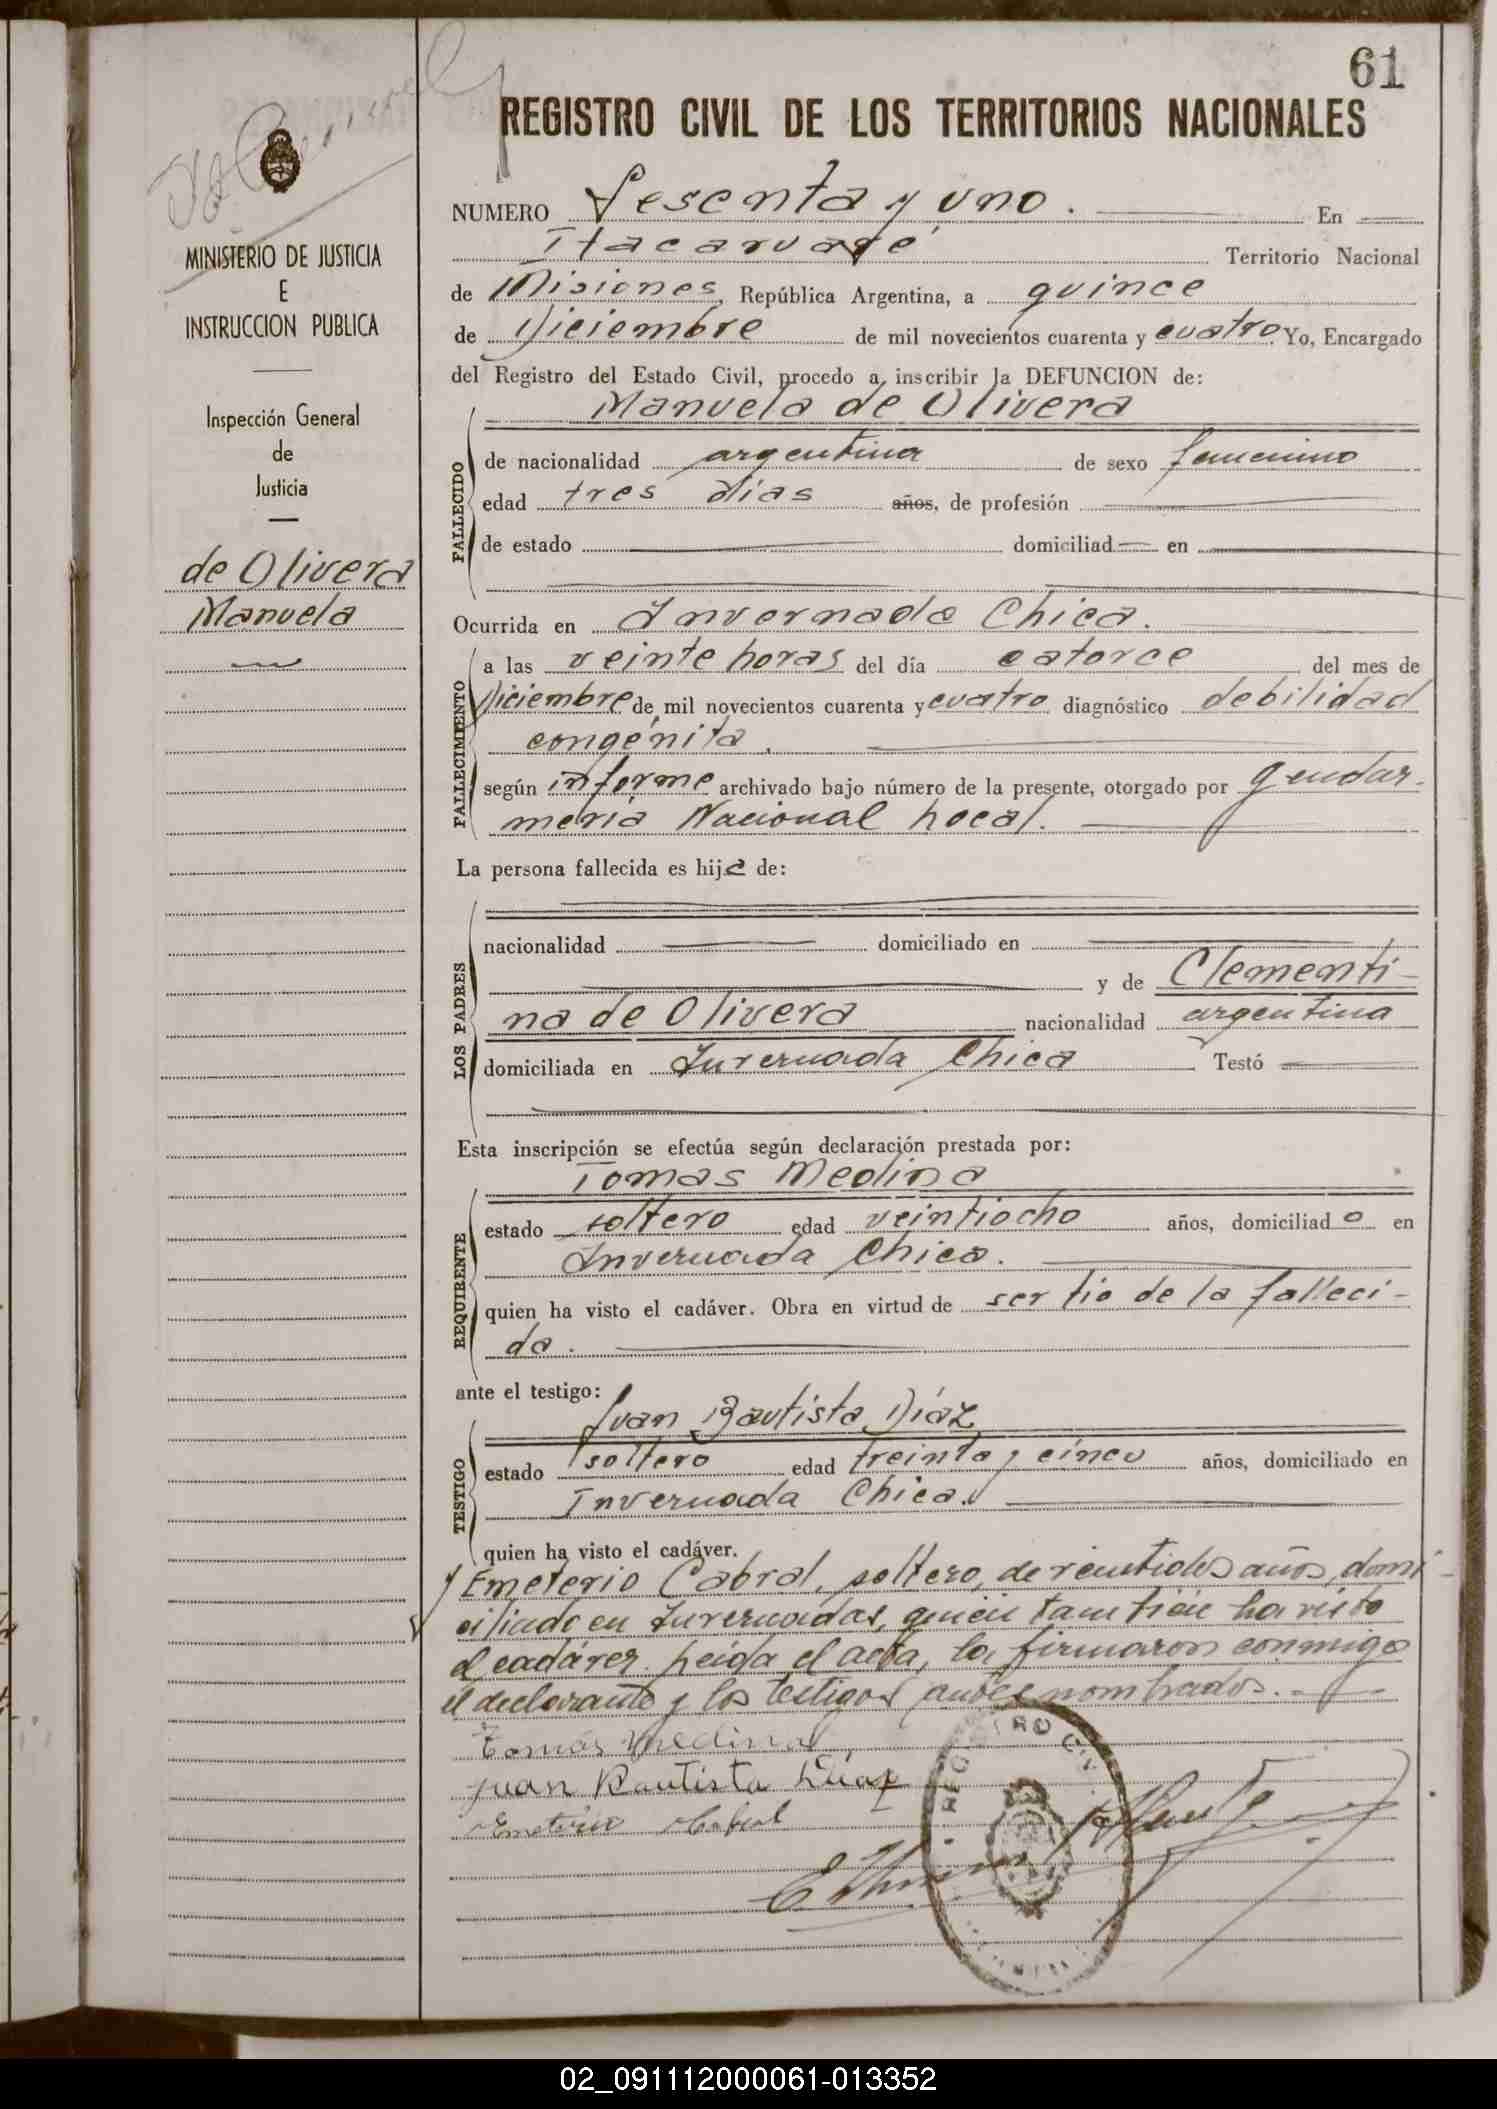 61
REGISTRO CIVIL DE LOS TERRITORIOS NACIONALES
MINISTERIO DE JUSTICIA
E
INSTRUCCION PUBLICA
Inspección General
de
Justicia
de Olivera
Manuela
NUMERO Sesenta y uno. En
Itacaruaré Territorio Nacional
de Misiones, República Argentina, a quince
de Diciembre de mil novecientos cuarenta y cuatro Yo, Encargado
del Registro del Estado Civil, procedo a inscribir la DEFUNCION de:
Manuela de Olivera
FALLECIDO
de nacionalidad argentina de sexo femenino
edad tres días años, de profesión
de estado domiciliad en
Ocurrida en Invernada Chica.
FALLECIMIENTO
a las veinte horas del día catorce del mes de
Diciembre de mil novecientos cuarenta y cuatro diagnóstico debilidad
congénita.
según informe archivado bajo número de la presente, otorgado por gendar-
mería Nacional local.
La persona fallecida es hija de:
LOS PADRES
nacionalidad domiciliado en
y de Clementi-
na de Olivera nacionalidad argentina
domiciliada en Invernada Chica Testó
Esta inscripción se efectúa según declaración prestada por:
Tomas Medina
REQUIRENTE
estado soltero edad veintiocho años, domiciliado en
Invernada Chica.
quien ha visto el cadáver. Obra en virtud de ser tio de la falleci-
da.
ante el testigo:
Juan Bautista Díaz
TESTIGO
estado soltero edad treinta y cinco años, domiciliado en
Invernada Chica.
quien ha visto el cadáver.
y Emeterio Cabral, soltero, de veintidos años, domi-
ciliado en Invernadas, quien tambien ha visto
el cadáver. Leida el acta, la firmaron conmigo
el declarante y los testigos antes nombrados.
Tomás Medina
Juan Bautista Diaz
Emeterio Cabral
REGISTRO CIVIL
02_091112000061-013352